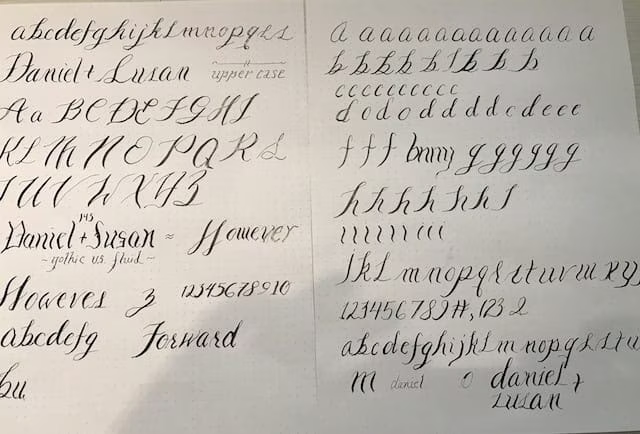 abcdefghijklmnopqrs
Daniel + Susan
uppercase
Aa BCDEFGHI
KLMNOPQRS
TUVWXYZ
143
Daniel + Susan ~ However
~ gothic vs. fluid ~
Howeves 3 12345678910
abcdefg Forward
bu
a aaaaaaaaaaaaa
bbbbbbbbb
cccccccccc
dododdddcdccc
fff bnmj gggggg
hhhhhhf
111111ccc
JkLmnopqrstuvwxy
123456789#,123 2
abcdefghijklmnopqrstu
m daniel o daniel +
susan